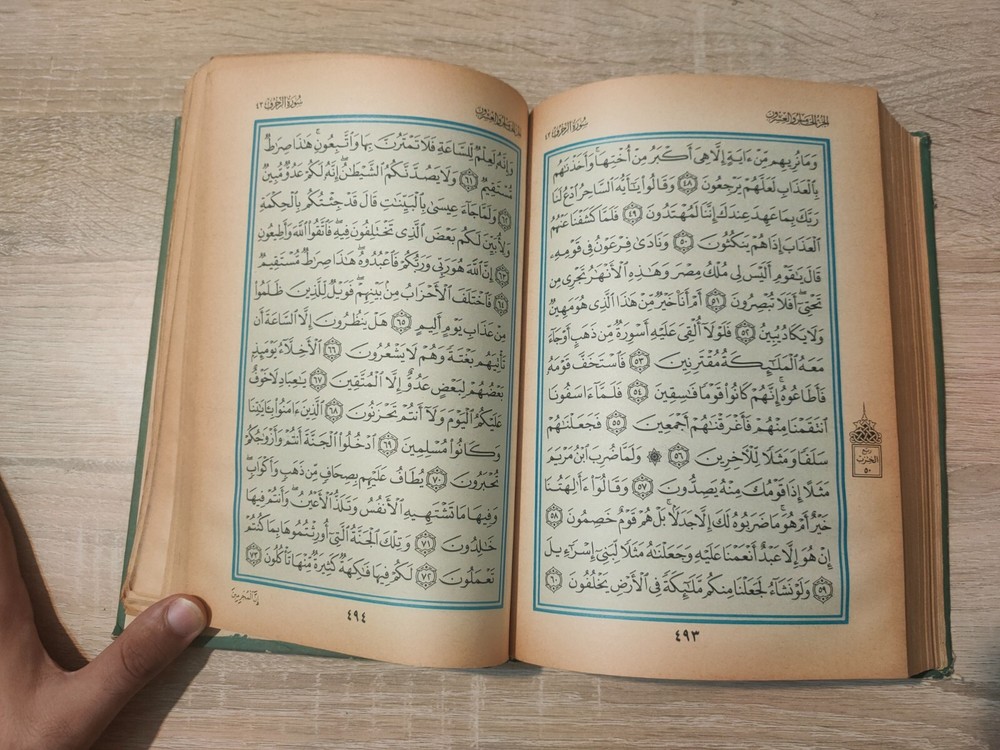 سورة الزخرف ٤٣
الجزء الخامس والعشرون
وَمَا نُرِيهِم مِّنْ ءَايَةٍ إِلَّا هِىَ أَكْبَرُ مِنْ أُخْتِهَا ۖ وَأَخَذْنَٰهُم
بِٱلْعَذَابِ لَعَلَّهُمْ يَرْجِعُونَ ٤٨ وَقَالُوا۟ يَٰٓأَيُّهَ ٱلسَّاحِرُ ٱدْعُ لَنَا
رَبَّكَ بِمَا عَهِدَ عِندَكَ إِنَّنَا لَمُهْتَدُونَ ٤٩ فَلَمَّا كَشَفْنَا عَنْهُمُ
ٱلْعَذَابَ إِذَا هُمْ يَنكُثُونَ ٥٠ وَنَادَىٰ فِرْعَوْنُ فِى قَوْمِهِۦ
قَالَ يَٰقَوْمِ أَلَيْسَ لِى مُلْكُ مِصْرَ وَهَٰذِهِ ٱلْأَنْهَٰرُ تَجْرِى مِن
تَحْتِىٓ ۖ أَفَلَا تُبْصِرُونَ ٥١ أَمْ أَنَا۠ خَيْرٌ مِّنْ هَٰذَا ٱلَّذِى هُوَ مَهِينٌ
وَلَا يَكَادُ يُبِينُ ٥٢ فَلَوْلَآ أُلْقِىَ عَلَيْهِ أَسْوِرَةٌ مِّن ذَهَبٍ أَوْ جَآءَ
مَعَهُ ٱلْمَلَٰٓئِكَةُ مُقْتَرِنِينَ ٥٣ فَٱسْتَخَفَّ قَوْمَهُۥ
فَأَطَاعُوهُ ۚ إِنَّهُمْ كَانُوا۟ قَوْمًا فَٰسِقِينَ ٥٤ فَلَمَّآ ءَاسَفُونَا
ٱنتَقَمْنَا مِنْهُمْ فَأَغْرَقْنَٰهُمْ أَجْمَعِينَ ٥٥ فَجَعَلْنَٰهُمْ
سَلَفًا وَمَثَلًا لِّلْءَاخِرِينَ ٥٦ ۞ وَلَمَّا ضُرِبَ ٱبْنُ مَرْيَمَ
مَثَلًا إِذَا قَوْمُكَ مِنْهُ يَصِدُّونَ ٥٧ وَقَالُوٓا۟ ءَأَٰلِهَتُنَا
خَيْرٌ أَمْ هُوَ ۚ مَا ضَرَبُوهُ لَكَ إِلَّا جَدَلًۢا ۚ بَلْ هُمْ قَوْمٌ خَصِمُونَ ٥٨
إِنْ هُوَ إِلَّا عَبْدٌ أَنْعَمْنَا عَلَيْهِ وَجَعَلْنَٰهُ مَثَلًا لِّبَنِىٓ إِسْرَٰٓءِيلَ
٥٩ وَلَوْ نَشَآءُ لَجَعَلْنَا مِنكُم مَّلَٰٓئِكَةً فِى ٱلْأَرْضِ يَخْلُفُونَ ٦٠
ربع
الحزب
٥٠
٤٩٣
سورة الزخرف ٤٣
الجزء الخامس والعشرون
وَإِنَّهُۥ لَعِلْمٌ لِّلسَّاعَةِ فَلَا تَمْتَرُنَّ بِهَا وَٱتَّبِعُونِ ۚ هَٰذَا صِرَٰطٌ
مُّسْتَقِيمٌ ٦١ وَلَا يَصُدَّنَّكُمُ ٱلشَّيْطَٰنُ ۖ إِنَّهُۥ لَكُمْ عَدُوٌّ مُّبِينٌ
٦٢ وَلَمَّا جَآءَ عِيسَىٰ بِٱلْبَيِّنَٰتِ قَالَ قَدْ جِئْتُكُم بِٱلْحِكْمَةِ
وَلِأُبَيِّنَ لَكُم بَعْضَ ٱلَّذِى تَخْتَلِفُونَ فِيهِ ۖ فَٱتَّقُوا۟ ٱللَّهَ وَأَطِيعُونِ
٦٣ إِنَّ ٱللَّهَ هُوَ رَبِّى وَرَبُّكُمْ فَٱعْبُدُوهُ ۚ هَٰذَا صِرَٰطٌ مُّسْتَقِيمٌ
٦٤ فَٱخْتَلَفَ ٱلْأَحْزَابُ مِنۢ بَيْنِهِمْ ۖ فَوَيْلٌ لِّلَّذِينَ ظَلَمُوا۟
مِنْ عَذَابِ يَوْمٍ أَلِيمٍ ٦٥ هَلْ يَنظُرُونَ إِلَّا ٱلسَّاعَةَ أَن
تَأْتِيَهُم بَغْتَةً وَهُمْ لَا يَشْعُرُونَ ٦٦ ٱلْأَخِلَّآءُ يَوْمَئِذٍۭ
بَعْضُهُمْ لِبَعْضٍ عَدُوٌّ إِلَّا ٱلْمُتَّقِينَ ٦٧ يَٰعِبَادِ لَا خَوْفٌ
عَلَيْكُمُ ٱلْيَوْمَ وَلَآ أَنتُمْ تَحْزَنُونَ ٦٨ ٱلَّذِينَ ءَامَنُوا۟ بِـَٔايَٰتِنَا
وَكَانُوا۟ مُسْلِمِينَ ٦٩ ٱدْخُلُوا۟ ٱلْجَنَّةَ أَنتُمْ وَأَزْوَٰجُكُمْ
تُحْبَرُونَ ٧٠ يُطَافُ عَلَيْهِم بِصِحَافٍ مِّن ذَهَبٍ وَأَكْوَابٍ ۖ
وَفِيهَا مَا تَشْتَهِيهِ ٱلْأَنفُسُ وَتَلَذُّ ٱلْأَعْيُنُ ۖ وَأَنتُمْ فِيهَا
خَٰلِدُونَ ٧١ وَتِلْكَ ٱلْجَنَّةُ ٱلَّتِىٓ أُورِثْتُمُوهَا بِمَا كُنتُمْ
تَعْمَلُونَ ٧٢ لَكُمْ فِيهَا فَٰكِهَةٌ كَثِيرَةٌ مِّنْهَا تَأْكُلُونَ ٧٣
إِنَّ الْمُجْرِمِينَ
٤٩٤